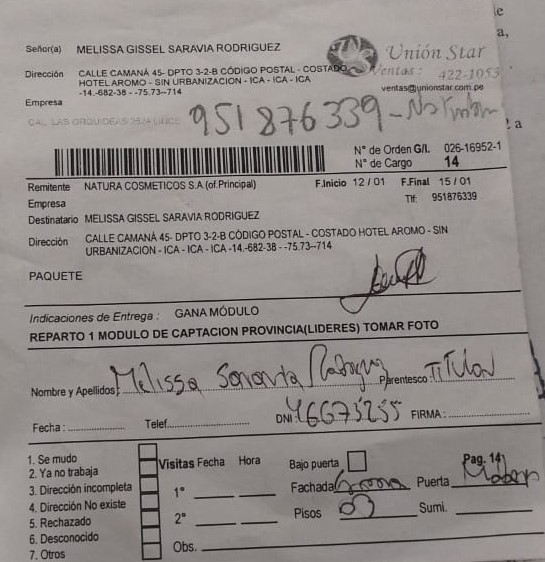 e
a,
Señor(a) MELISSA GISSEL SARAVIA RODRIGUEZ
Unión Star
Dirección CALLE CAMANÁ 45- DPTO 3-2-B CÓDIGO POSTAL - COSTADO
HOTEL AROMO - SIN URBANIZACION - ICA - ICA - ICA
-14.-682-38 - -75.73--714
Ventas: 422-1053
ventas@unionstar.com.pe
Empresa
951876339-
a
N° de Orden G/I. 026-16952-1
N° de Cargo 14
Remitente NATURA COSMETICOS S.A (of.Principal) F.Inicio 12/01 F.Final 15/01
Empresa Tlf: 951876339
Destinatario MELISSA GISSEL SARAVIA RODRIGUEZ
Dirección CALLE CAMANÁ 45- DPTO 3-2-B CÓDIGO POSTAL - COSTADO HOTEL AROMO - SIN
URBANIZACION - ICA - ICA - ICA -14.-682-38 - -75.73--714
PAQUETE
Indicaciones de Entrega : GANA MÓDULO
REPARTO 1 MODULO DE CAPTACION PROVINCIA(LIDERES) TOMAR FOTO
Nombre y Apellidos: Melissa Saravia Rodriguez Parentesco: TITULAR
Fecha : Telef. DNI: 46673255 FIRMA :
1. Se mudo
2. Ya no trabaja
3. Dirección incompleta
4. Dirección No existe
5. Rechazado
6. Desconocido
7. Otros
Visitas Fecha Hora
1°
2°
Obs.
Bajo puerta Pag. 14
Fachada Puerta
Pisos 03 Sumi.